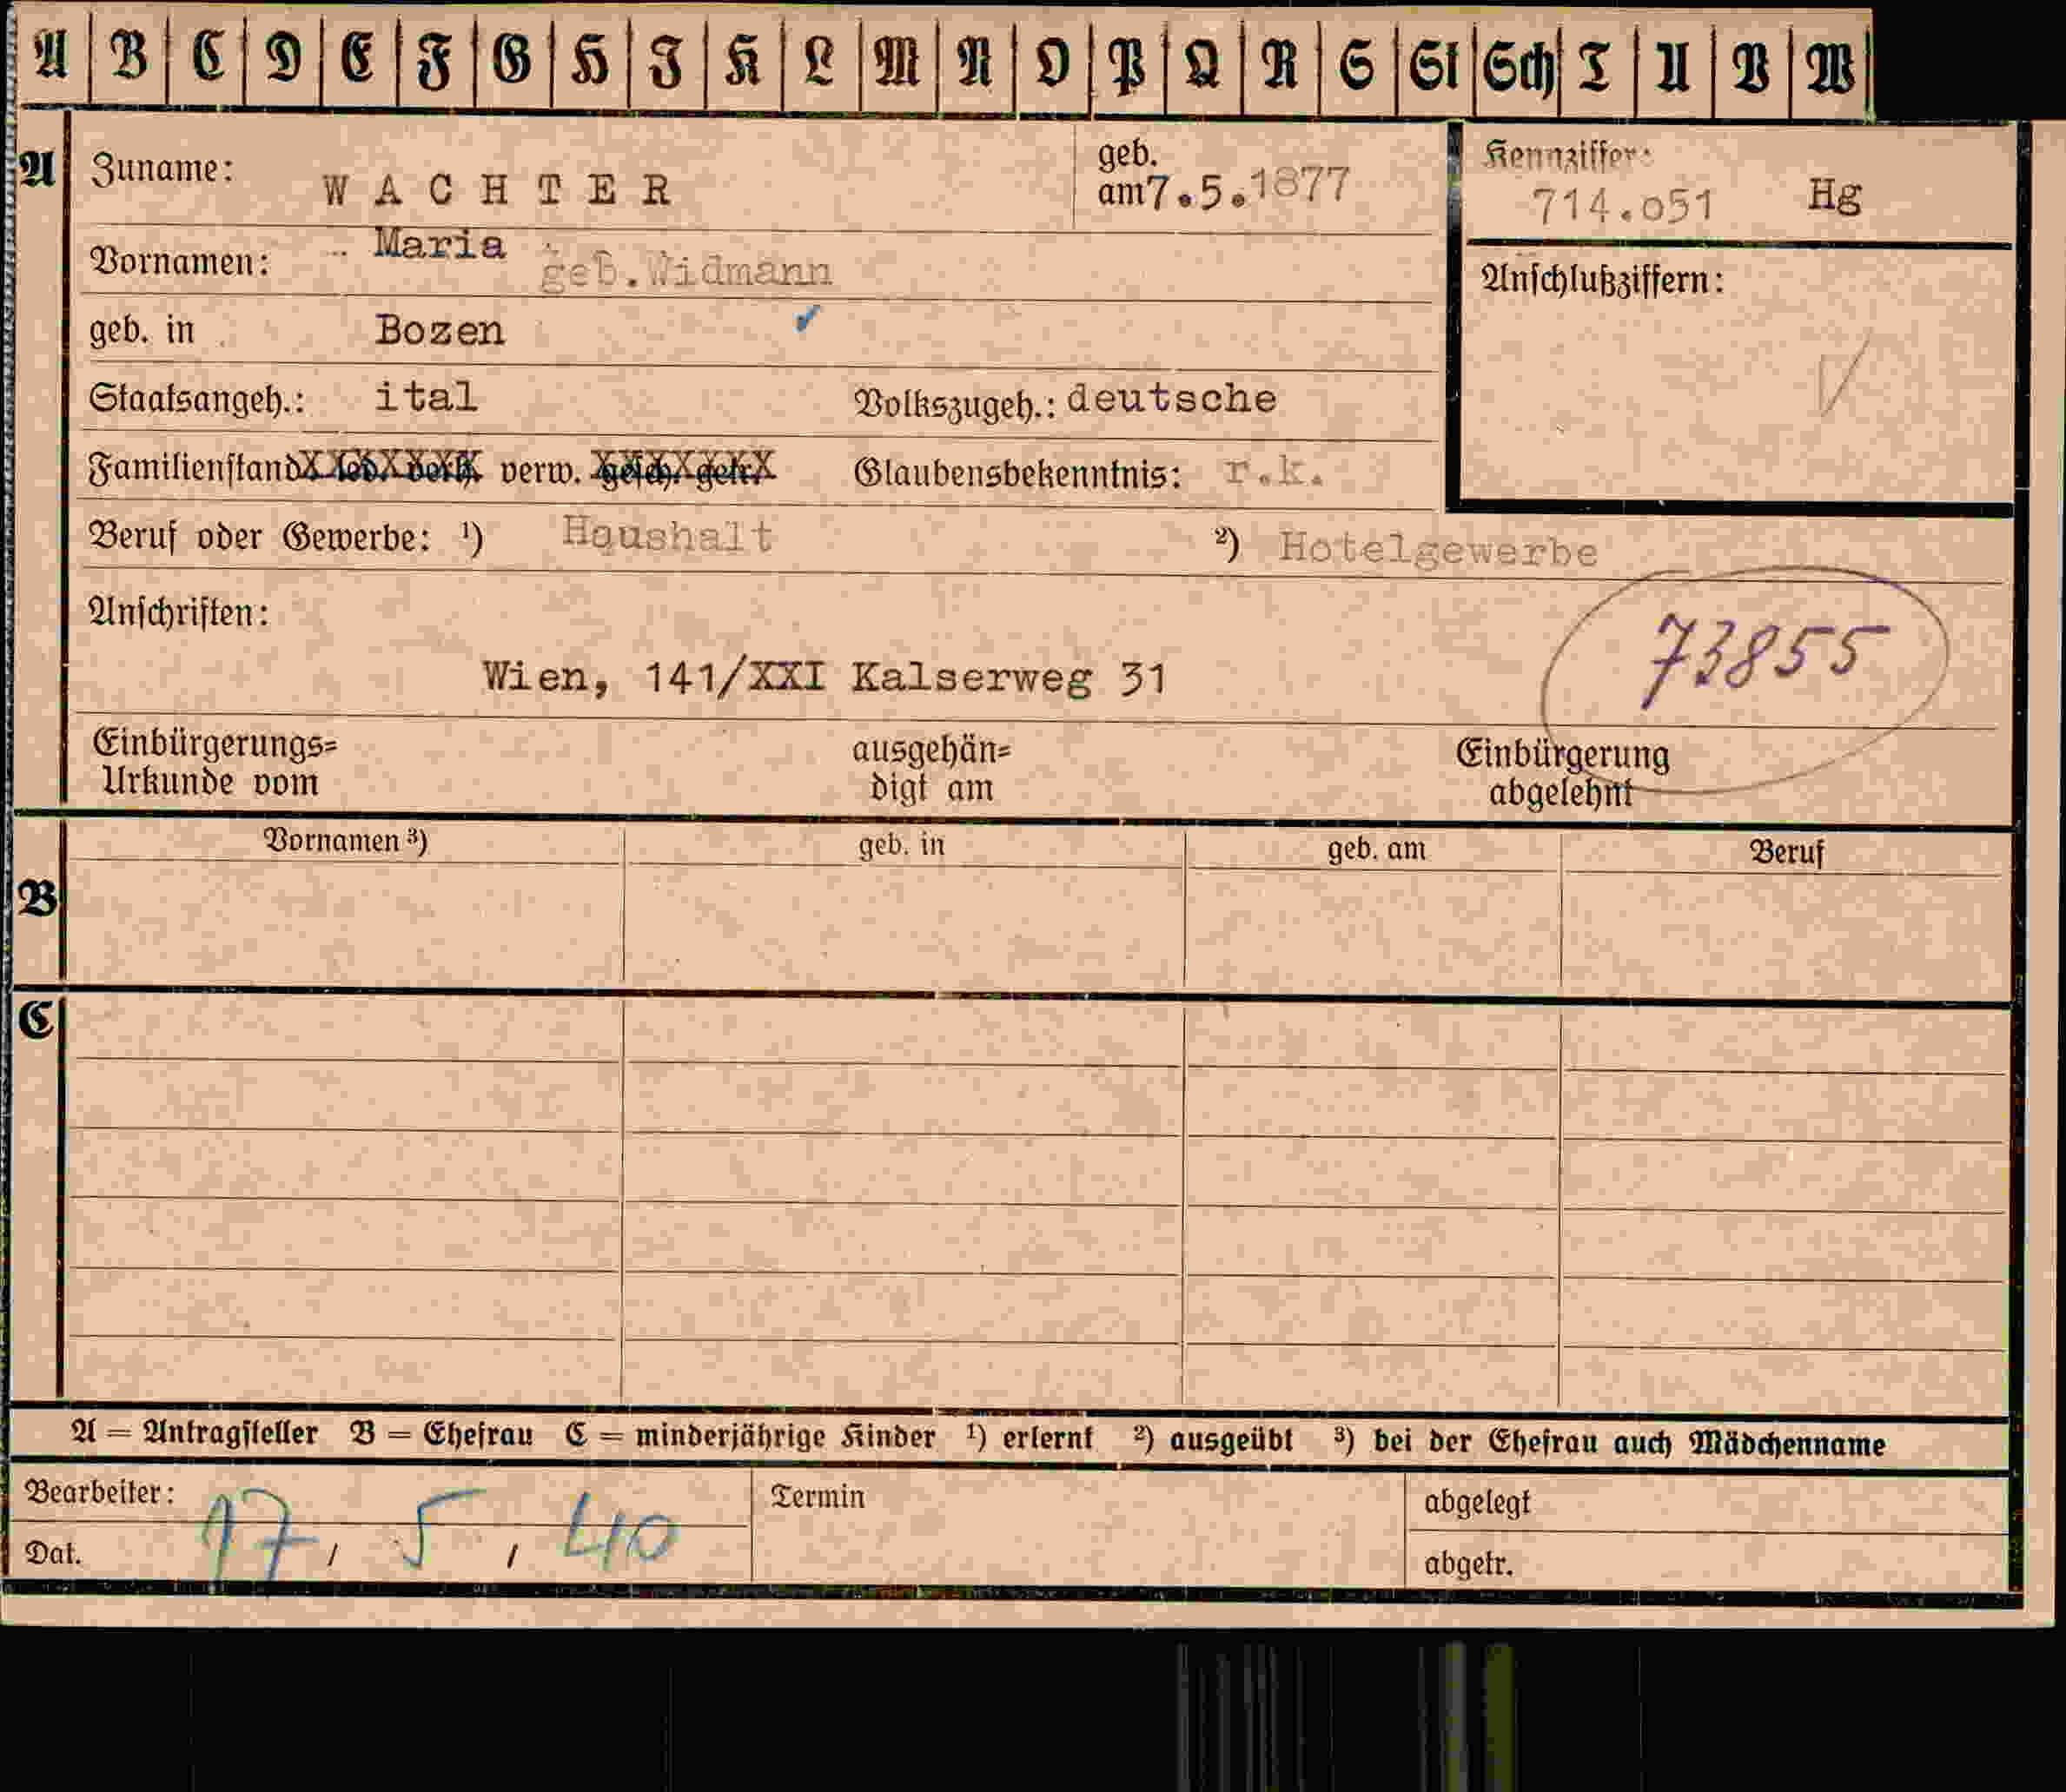 A B C D E F G H I K L M N O P Q R S St Sch T U V W
A Zuname: WACHTER geb. am 7.5.1877 Kennziffer: 714.051 Hg
Vornamen: Maria geb. Widmann Anschlußziffern:
geb. in Bozen
Staatsangeh.: ital Volkszugeh.: deutsche
Familienstand led. verh. verw. gesch. getr. Glaubensbekenntnis: r.k.
Beruf oder Gewerbe: ¹) Haushalt ²) Hotelgewerbe
Anschriften:
73855
Wien, 141/XXI Kalserweg 31
Einbürgerungs= ausgehän= Einbürgerung
Urkunde vom digt am abgelehnt
Vornamen ³) geb. in geb. am Beruf
B
C
A = Antragsteller B = Ehefrau C = minderjährige Kinder ¹) erlernt ²) ausgeübt ³) bei der Ehefrau auch Mädchenname
Bearbeiter: Termin abgelegt
Dat. 17 / 5 / 40 abgetr.